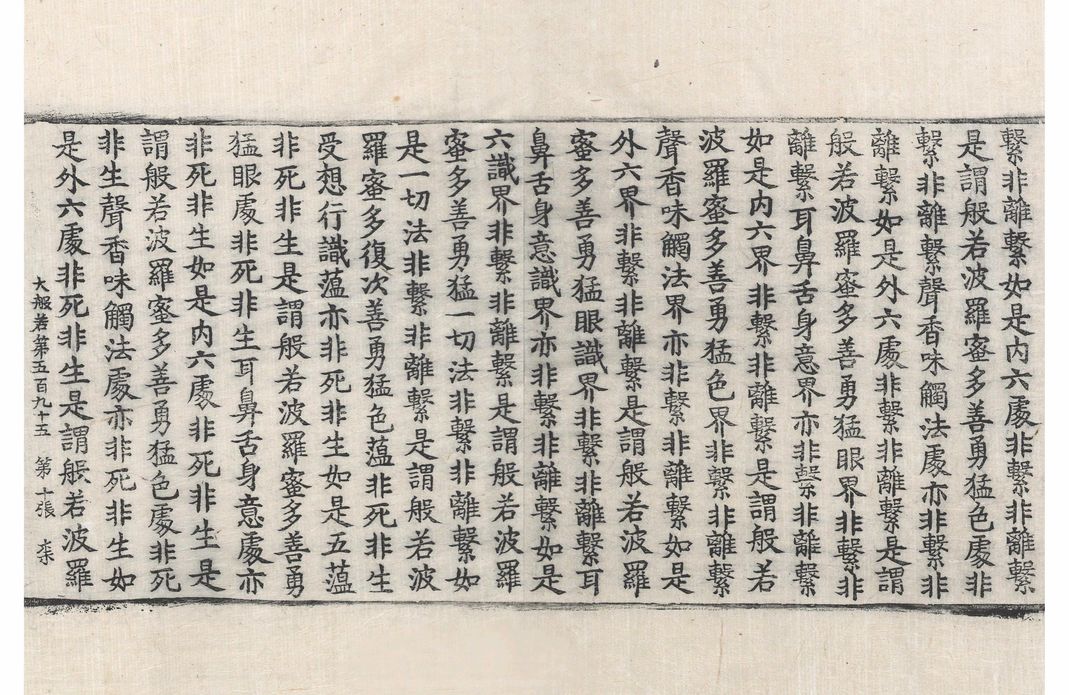 繫非離繫如是内六處非繫非離繫
是謂般若波羅蜜多善勇猛色處非
繫非離繫聲香味觸法處亦非繫非
離繫如是外六處非繫非離繫是謂
般若波羅蜜多善勇猛眼界非繫非
離繫耳鼻舌身意界亦非繫非離繫
如是内六界非繫非離繫是謂般若
波羅蜜多善勇猛色界非繫非離繫
聲香味觸法界亦非繫非離繫如是
外六界非繫非離繫是謂般若波羅
蜜多善勇猛眼識界非繫非離繫耳
鼻舌身意識界亦非繫非離繫如是
六識界非繫非離繫是謂般若波羅
蜜多善勇猛一切法非繫非離繫如
是一切法非繫非離繫是謂般若波
羅蜜多復次善勇猛色蕴非死非生
受想行識蕴亦非死非生如是五蕴
非死非生是謂般若波羅蜜多善勇
猛眼處非死非生耳鼻舌身意處亦
非死非生如是内六處非死非生是
謂般若波羅蜜多善勇猛色處非死
非生聲香味觸法處亦非死非生如
是外六處非死非生是謂般若波羅
大般若第五百九十五 第十張 柰